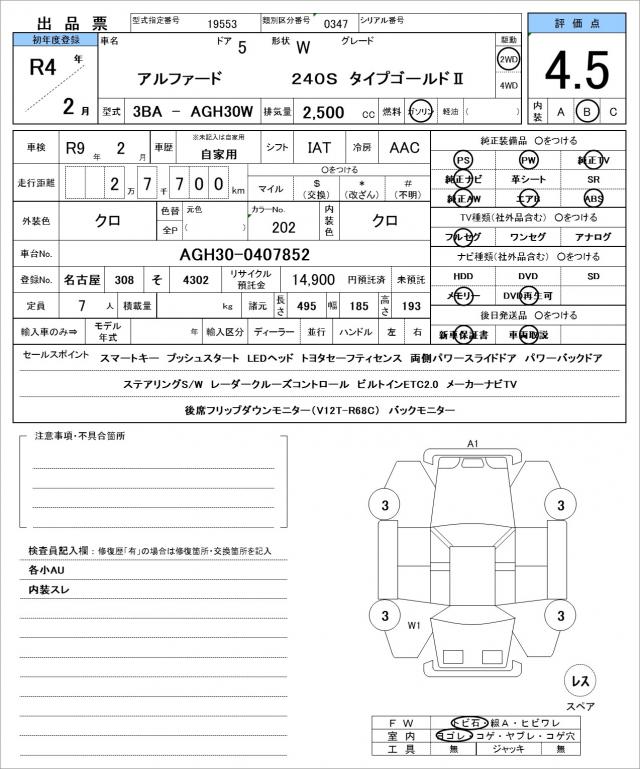 出品票 型式指定番号 19553 類別区分番号 0347 シリアル番号 評価点
初年度登録 車名 ドア 5 形状 W グレード 駆動 4.5
R4 年 2 月 アルファード 240S タイプゴールドⅡ 2WD 4WD
型式 3BA － AGH30W 排気量 2,500 cc 燃料 ガソリン 軽油 ( ) 内装 A B C
車検 R9 年 2 月 車歴 ※未記入は自家用 自家用 シフト IAT 冷房 AAC 純正装備品 〇をつける
走行距離 2 万 7 千 7 0 0 km 〇をつける マイル $ (交換) * (改ざん) # (不明)
PS PW 純正TV
純正ナビ 革シート SR
純正AW エアB ABS
外装色 クロ 色替 元色 全P ( ) カラーNo. 202 内装色 クロ
TV種類(社外品含む) 〇をつける
フルセグ ワンセグ アナログ
車台No. AGH30-0407852
ナビ種類(社外品含む) 〇をつける
登録No. 名古屋 308 そ 4302 リサイクル預託金 14,900 円預託済 未預託
HDD DVD SD
定員 7 人 積載量 kg 諸元 長さ 495 幅 185 高さ 193
メモリー DVD再生可
後日発送品 〇をつける
輸入車のみ⇒ モデル年式 年 輸入区分 ディーラー 並行 ハンドル 左 右
新車保証書 車両取説
セールスポイント スマートキー プッシュスタート LEDヘッド トヨタセーフティセンス 両側パワースライドドア パワーバックドア
ステアリングS/W レーダークルーズコントロール ビルトインETC2.0 メーカーナビTV
後席フリップダウンモニター(V12T-R68C) バックモニター
注意事項・不具合箇所
検査員記入欄：修復歴「有」の場合は修復箇所・交換箇所を記入
各小AU
内装スレ
A1
3 3
3 3
W1
レス
スペア
FW トビ石・線A・ヒビワレ
室内 ヨゴレ・コゲ・ヤブレ・コゲ穴
工具 無 ジャッキ 無